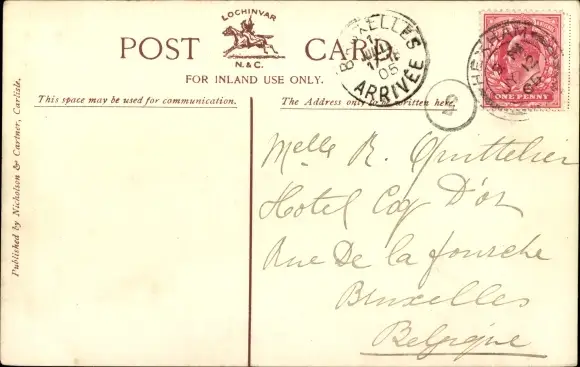 LOCHINVAR
POST CARD
N.&C.
FOR INLAND USE ONLY.
This space may be used for communication.
The Address only to be written here.
BRUXELLES
1
05
ARRIVÉE
2
HEXHAM
12
05
ONE PENNY
Published by Nicholson & Cartner, Carlisle.
Melle R. Quittelier
Hotel Coq D'or
Rue De la fourche
Bruxelles
Belgique